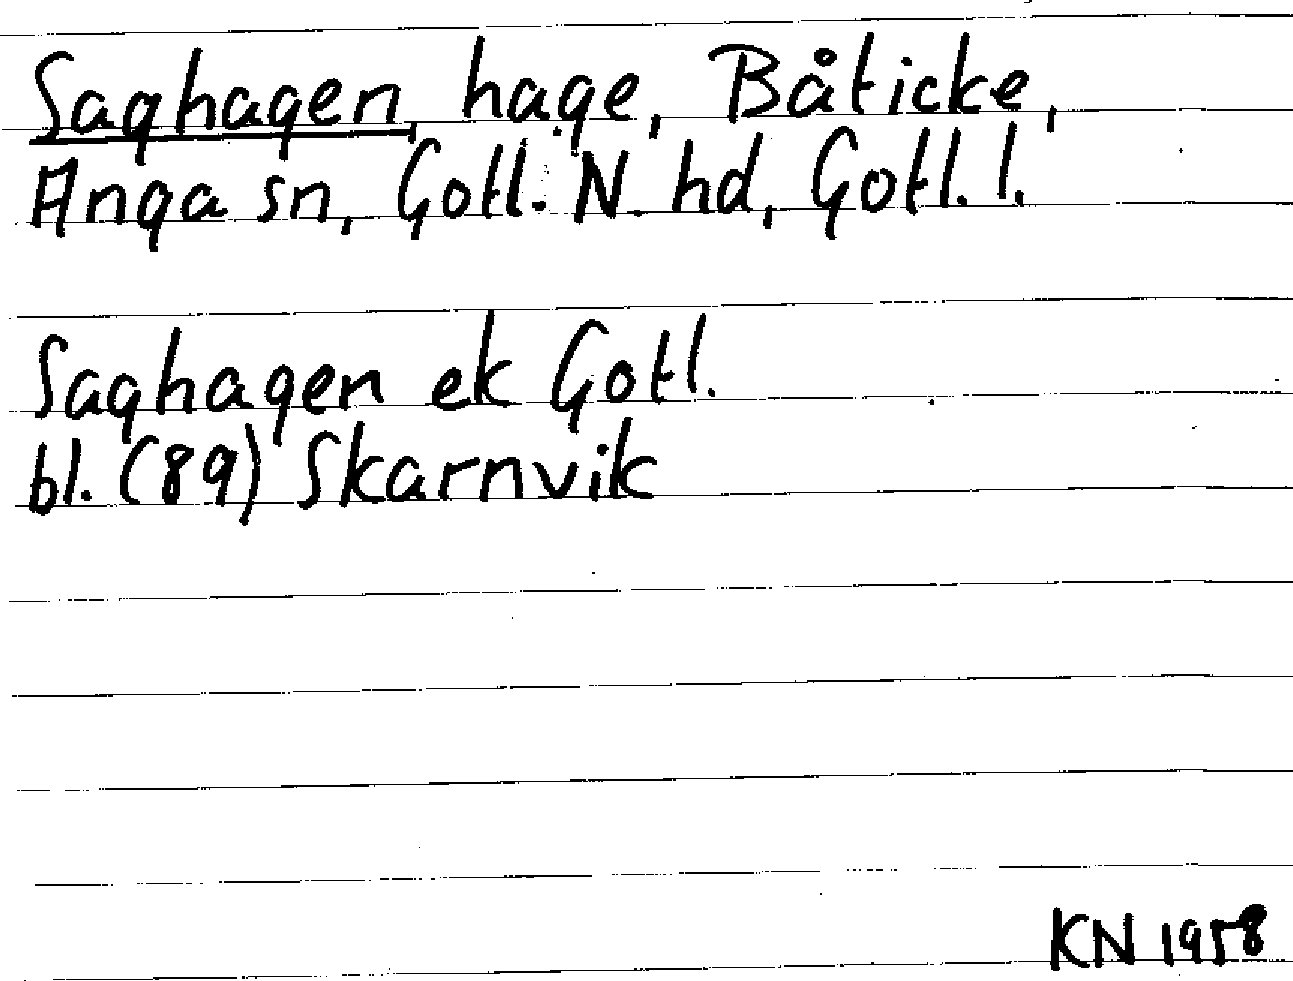 Saghagen, hage, Båticke,
Anga sn, Gotl. N. hd, Gotl. l.
Saghagen ek Gotl.
bl. (89) Skarnvik
KN 1958